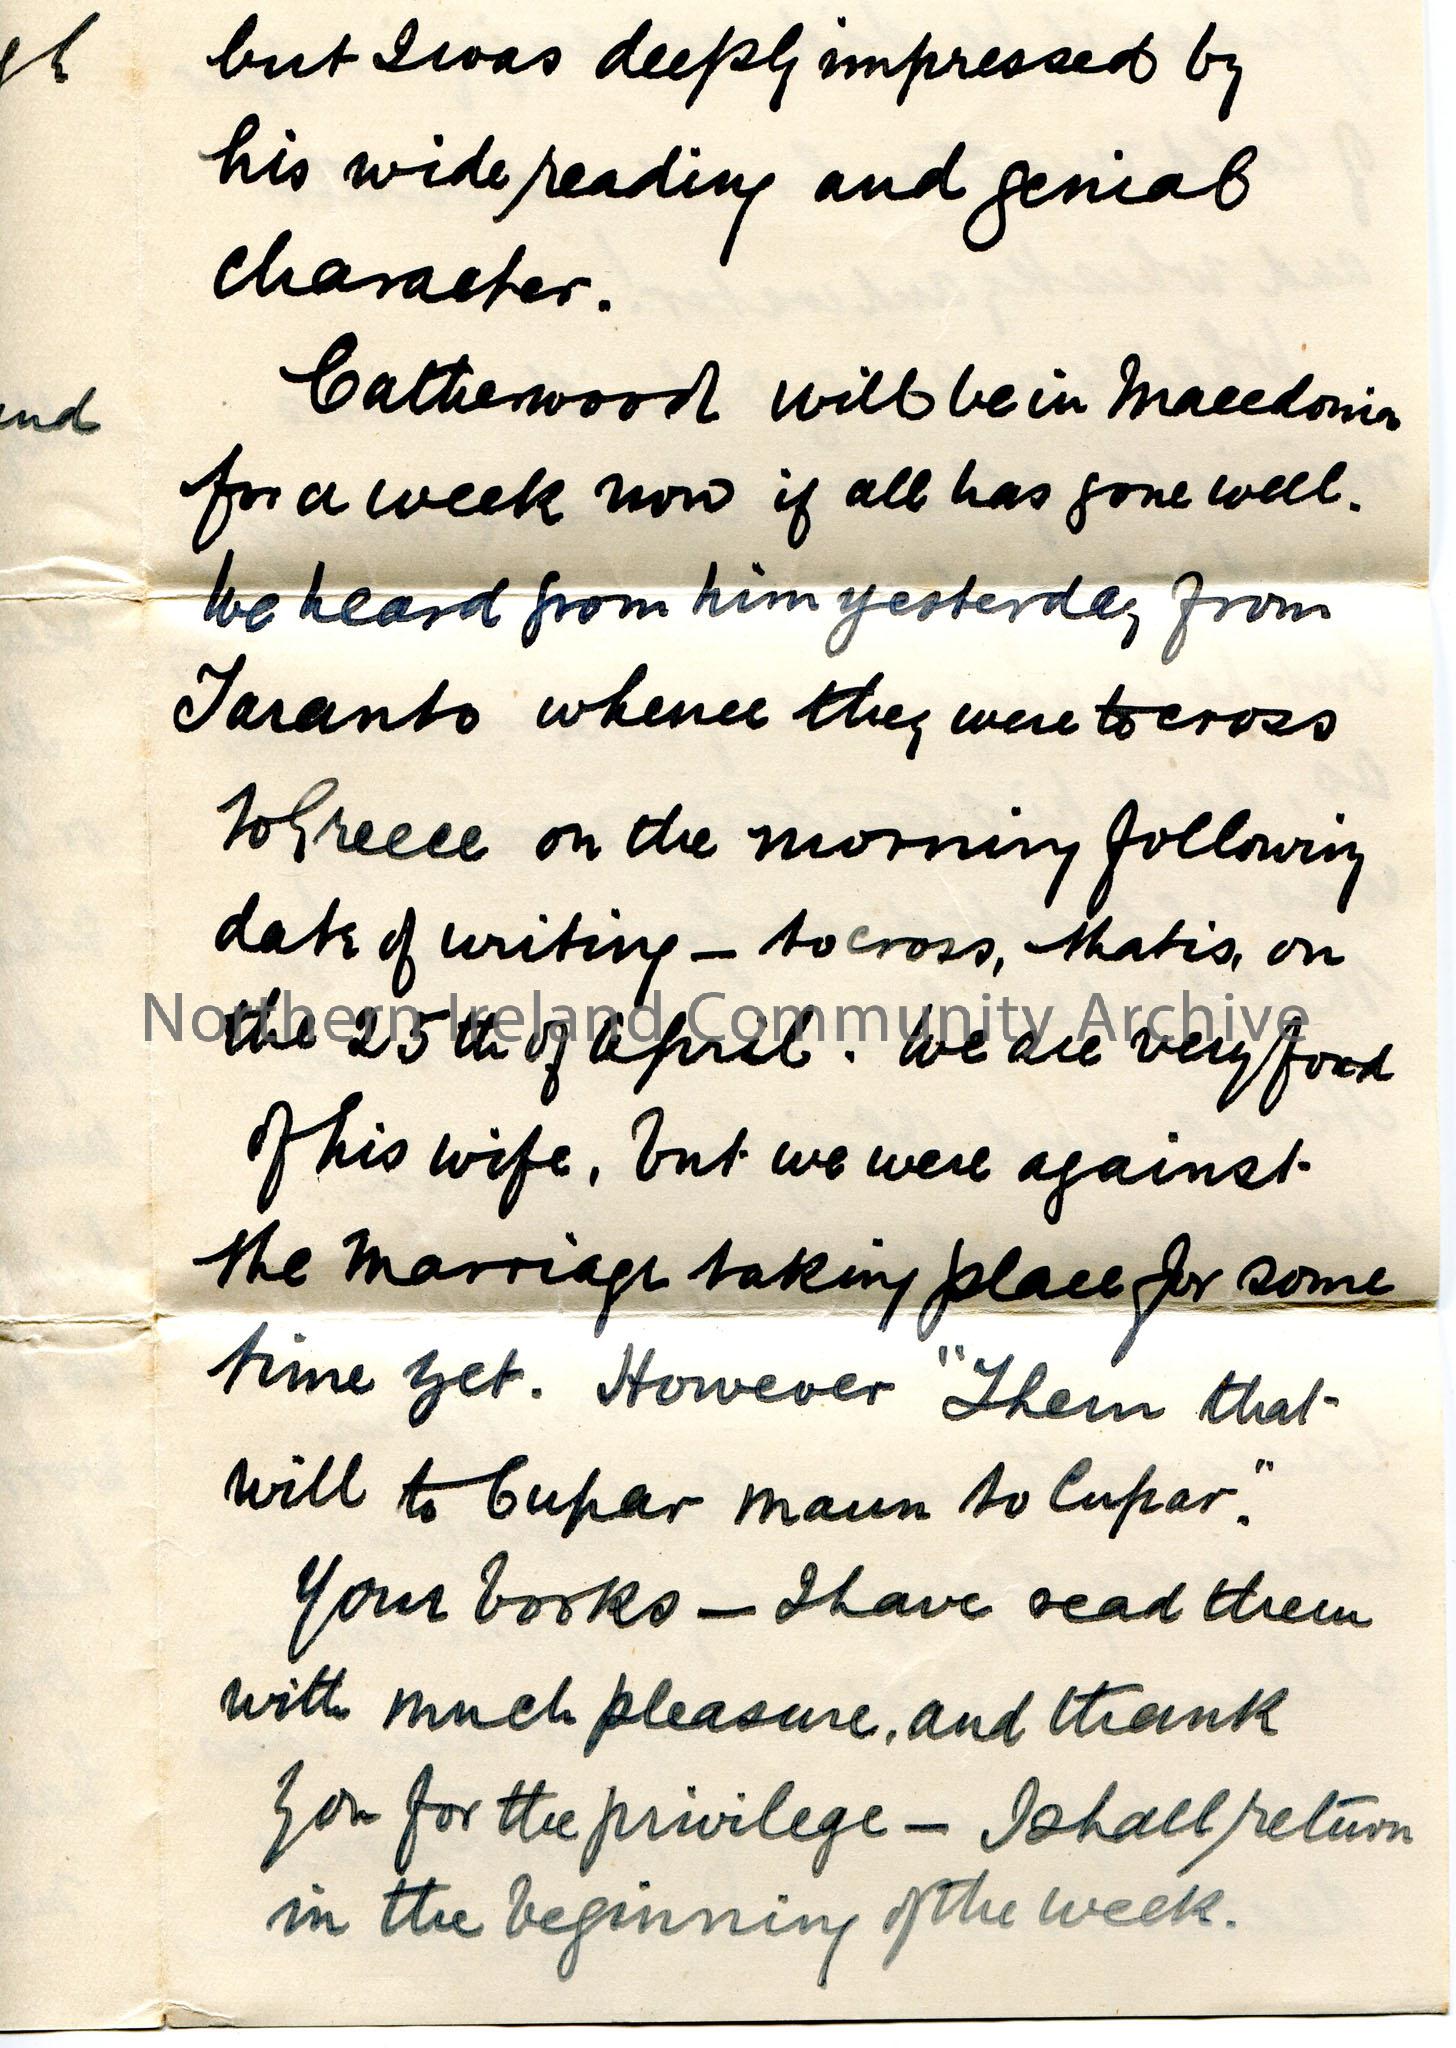 gh
but I was deeply impressed by
his wide reading and genial
character.
Catherwood will be in Macedonia
and
for a week now if all has gone well.
We heard from him yesterday from
Taranto whence they were to cross
to Greece on the morning following
date of writing — to cross, that is, on
Northern Ireland Community Archive
the 25th of April. We are very fond
of his wife, but we were against
the marriage taking place for some
time yet. However "Them that
will to Cupar maun to Cupar."
Your books — I have read them
with much pleasure, and thank
you for the privilege — I shall return
in the beginning of the week.